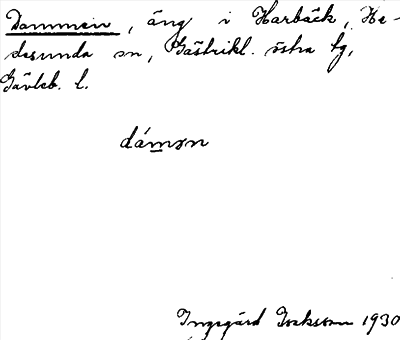 Dammen, äng i Harbäck, He-
desunda sn, Gästrikl. östra tg,
Gävleb. l.
dámən
Ingegärd Isaksson 1930